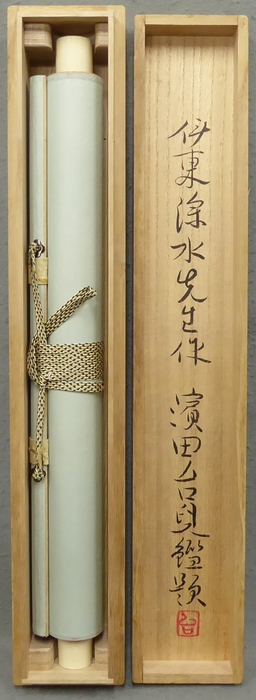 伊東深水先生作 濱田台兒鑑題